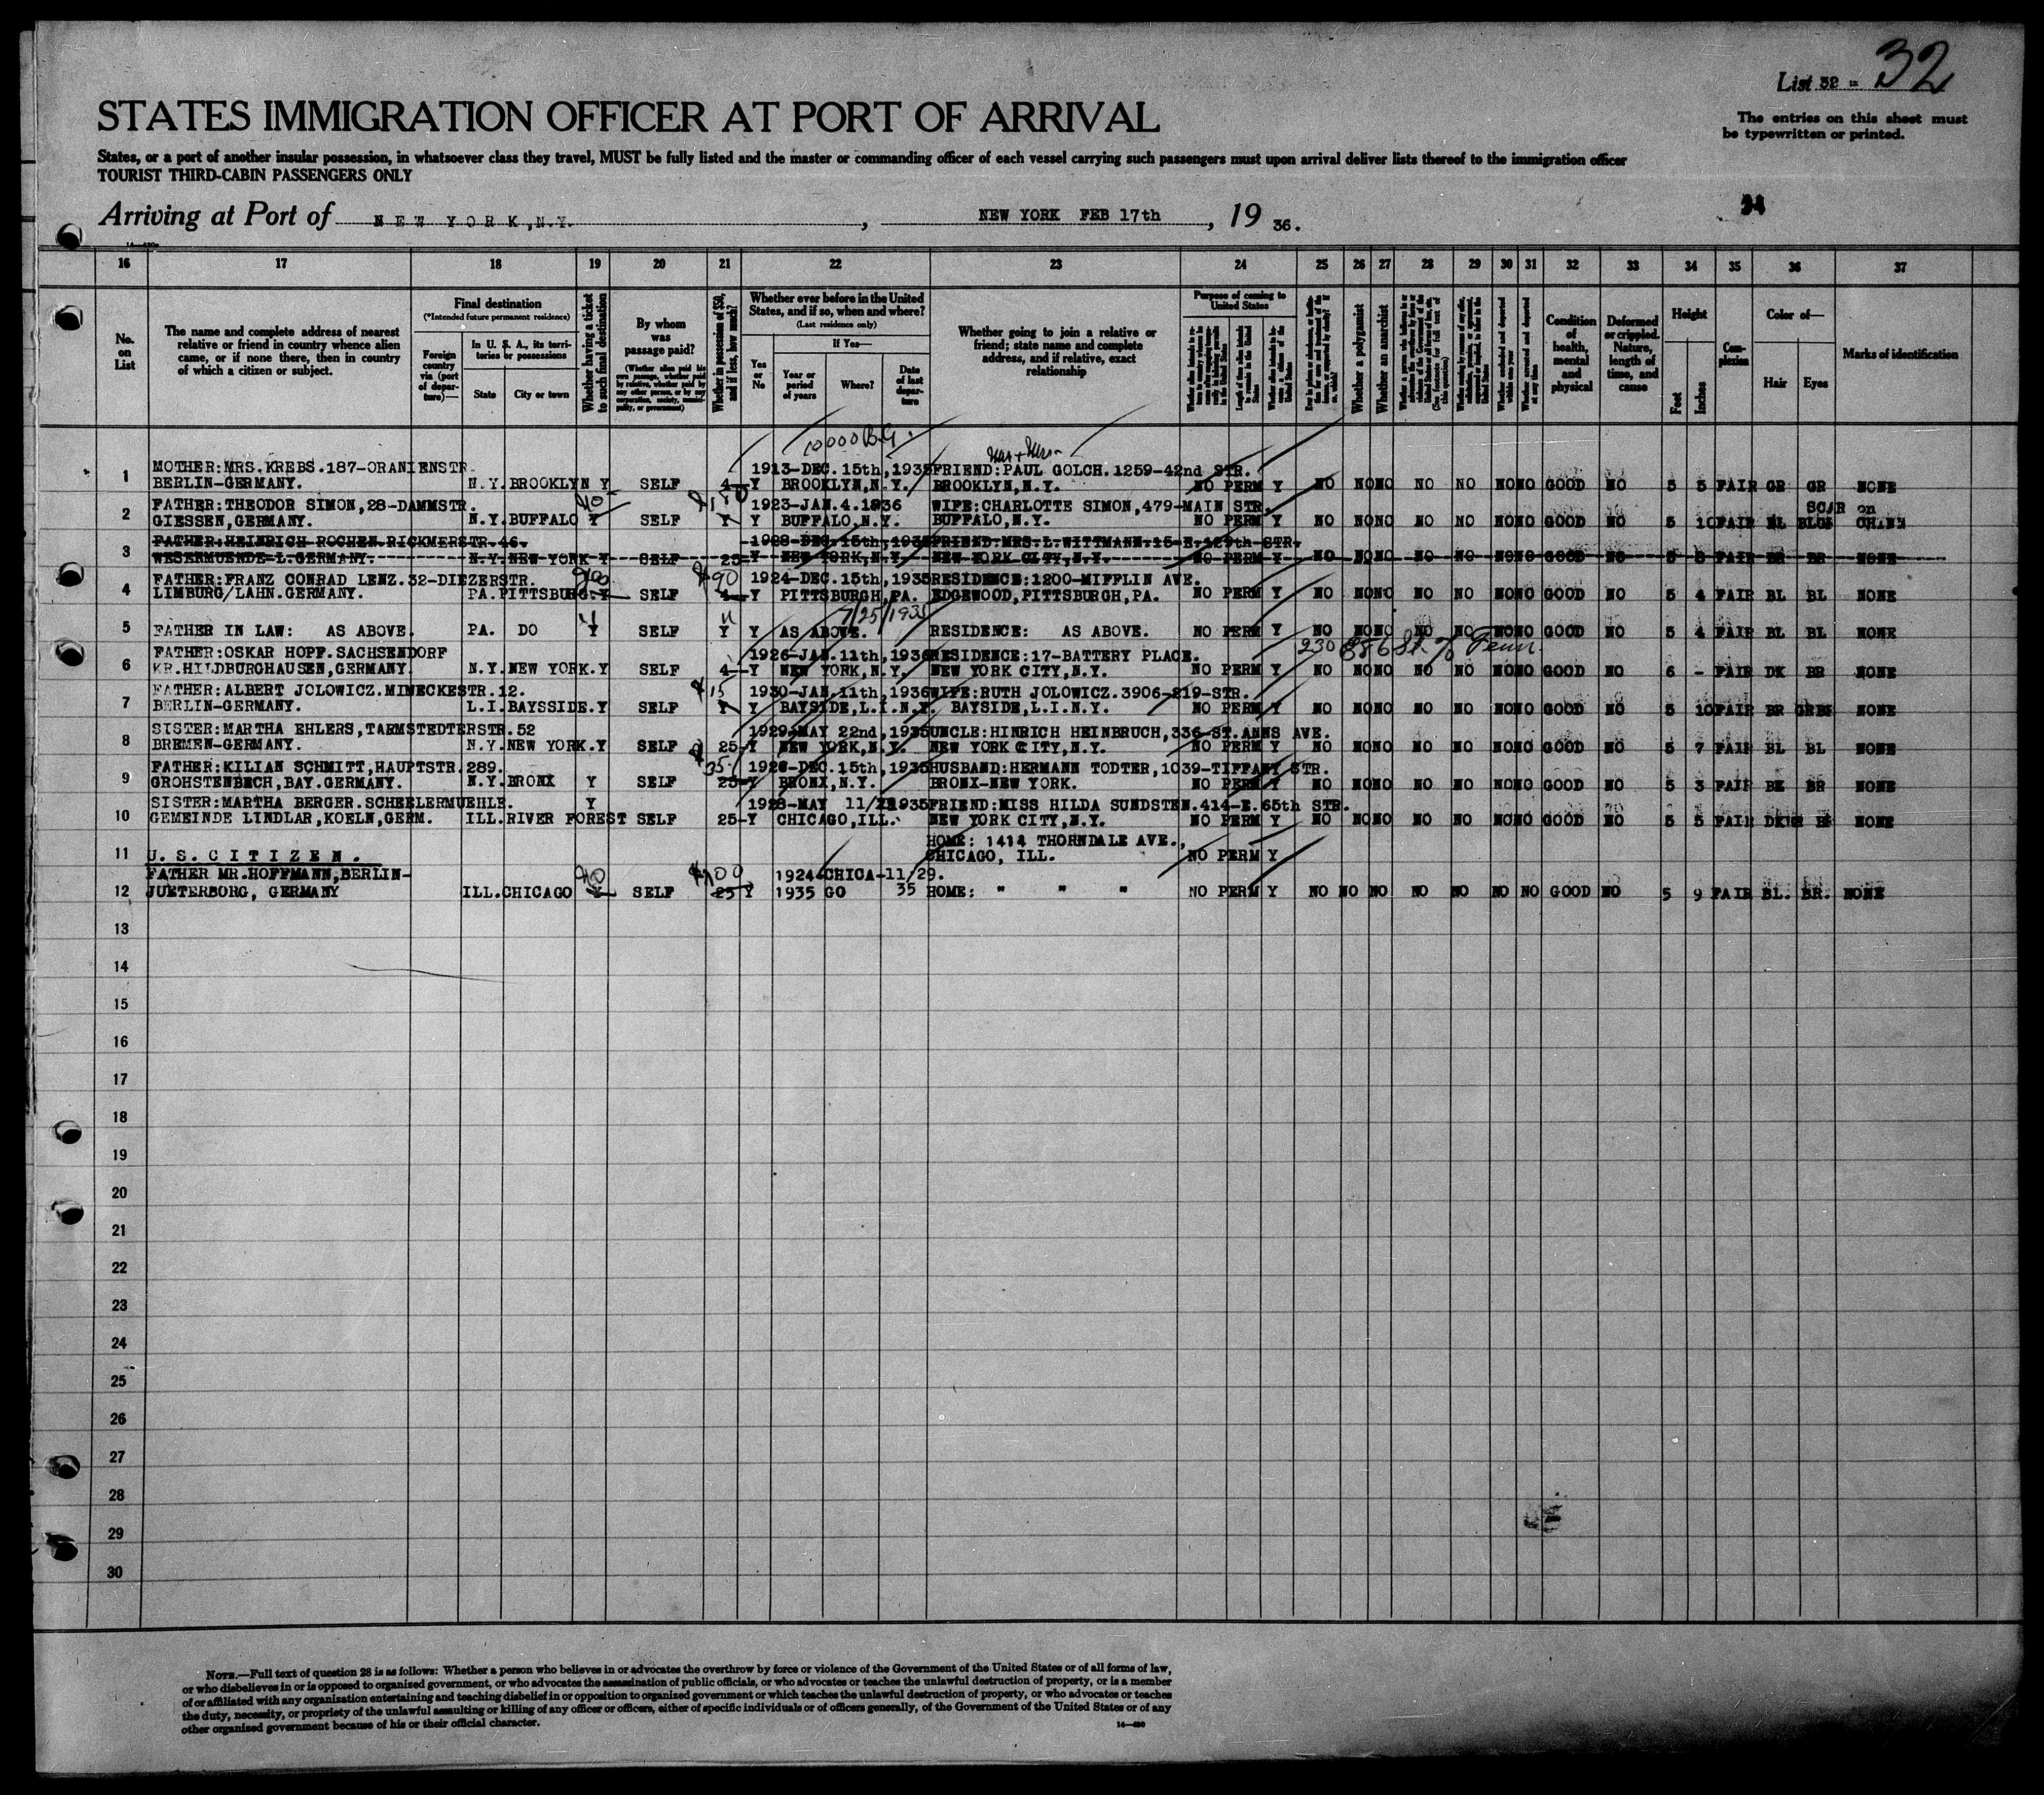 List 32 32
The entries on this sheet must
be typewritten or printed.
STATES IMMIGRATION OFFICER AT PORT OF ARRIVAL
States, or a port of another insular possession, in whatsoever class they travel, MUST be fully listed and the master or commanding officer of each vessel carrying such passengers must upon arrival deliver lists thereof to the immigration officer
TOURIST THIRD-CABIN PASSENGERS ONLY
Arriving at Port of NEW YORK, N.Y., NEW YORK FEB 17th, 19 36.
16 17 18 19 20 21 22 23 24 25 26 27 28 29 30 31 32 33 34 35 36 37
No. on List
The name and complete address of nearest
relative or friend in country whence alien
came, or if none there, then in country
of which a citizen or subject.
Final destination
(*Intended future permanent residence)
Foreign country via (port of departure)—
In U. S. A., its territories or possessions
State
City or town
Whether having a ticket to such final destination
By whom was passage paid?
(Whether alien paid his own passage, whether paid by relative, whether paid by any other person, or by any corporation, society, municipality, or government)
Whether in possession of $50, and if less, how much?
Whether ever before in the United
States, and if so, when and where?
(Last residence only)
Yes or No
If Yes—
Year or period of years
Where?
Date of last departure
Whether going to join a relative or
friend; state name and complete
address, and if relative, exact
relationship
Purpose of coming to United States
Whether a polygamist
Whether an anarchist
Condition of health, mental and physical
Deformed or crippled. Nature, length of time, and cause
Height
Feet
Inches
Complexion
Color of—
Hair
Eyes
Marks of identification
10000 B.G.
MOTHER:MRS.KREBS.187-ORANIENSTR. 1913-DEC.15th,1935 FRIEND:PAUL GOLCH.1259-42nd STR.
1 BERLIN-GERMANY. N.Y. BROOKLYN Y SELF 4 Y BROOKLYN,N.Y. BROOKLYN,N.Y. NO PERM Y NO NO NO NO NO NO NO GOOD NO 5 5 FAIR GR GR NONE
FATHER:THEODOR SIMON,28-DAMMSTR. 1923-JAN.4.1936 WIFE:CHARLOTTE SIMON,479-MAIN STR. SCAR on
2 GIESSEN,GERMANY. N.Y. BUFFALO Y SELF Y Y BUFFALO,N.Y. BUFFALO,N.Y. NO PERM Y NO NO NO NO NO NO NO GOOD NO 5 10 FAIR BL
FATHER:HEINRICH ROCHEN.RICKMERSTR.46. 1928-DEC.15th,1935 FRIEND.MRS.L.WITTMANN.15-E.129th-STR.
3 WESERMUENDE-L.GERMANY. N.Y. NEW YORK Y SELF 25 Y NEW YORK,N.Y. NEW YORK CITY,N.Y. NO PERM Y NO NO NO NO NO NO NO GOOD NO 5 8 FAIR BR BR NONE
FATHER:FRANZ CONRAD LENZ.32-DIEZERSTR. $90 1924-DEC.15th,1935 RESIDENCE:1200-MIFFLIN AVE.
4 LIMBURG/LAHN.GERMANY. PA. PITTSBURG. Y SELF 4 Y PITTSBURGH,PA. EDGEWOOD,PITTSBURGH,PA. NO PERM Y NO NO NO NO NO NO NO GOOD NO 5 4 FAIR BL BL NONE
7/25/1935
5 FATHER IN LAW: AS ABOVE. PA. DO Y SELF Y Y AS ABOVE. RESIDENCE: AS ABOVE. NO PERM Y NO NO NO NO NO NO NO GOOD NO 5 4 FAIR BL BL NONE
FATHER:OSKAR HOPF.SACHSENDORF 1926-JAN.11th,1936 RESIDENCE:17-BATTERY PLACE. 230 E 86 St.
6 KR.HILDBURGHAUSEN,GERMANY. N.Y. NEW YORK. Y SELF 4 Y NEW YORK,N.Y. NEW YORK CITY,N.Y. NO PERM Y NO NO NO NO NO NO NO GOOD NO 6 - FAIR DK BR NONE
FATHER:ALBERT JOLOWICZ.MINECKESTR.12. $15 1930-JAN.11th,1936 WIFE:RUTH JOLOWICZ.3906-219-STR.
7 BERLIN-GERMANY. L.I. BAYSSIDE. Y SELF Y Y BAYSIDE,L.I.N.Y. BAYSIDE,L.I.N.Y. NO PERM Y NO NO NO NO NO NO NO GOOD NO 5 10 FAIR BR NONE
SISTER:MARTHA EHLERS,TARMSTEDTERSTR.52 1929-MAY 22nd,1935 UNCLE:HINRICH HEINBRUCH,336-ST.ANNS AVE.
8 BREMEN-GERMANY. N.Y. NEW YORK. Y SELF 25 Y NEW YORK,N.Y. NEW YORK CITY,N.Y. NO PERM Y NO NO NO NO NO NO NO GOOD NO 5 7 FAIR BL BL NONE
FATHER:KILIAN SCHMITT,HAUPTSTR.289. 35. 1926-DEC.15th,1935 HUSBAND:HERMANN TODTER,1039-TIFFANY STR.
9 GROHSTENBECH,BAY.GERMANY. N.Y. BRONX Y SELF 25 Y BRONX,N.Y. BRONX-NEW YORK. NO PERM Y NO NO NO NO NO NO NO GOOD NO 5 3 FAIR BR NONE
SISTER:MARTHA BERGER.SCHEELERMUEHLE. Y 1928-MAY 1935 FRIEND:MISS HILDA SUNDSTEN.414-E.65th STR.
10 GEMEINDE LINDLAR,KOELN,GERM. ILL. RIVER FOREST SELF 25 Y CHICAGO,ILL. NEW YORK CITY,N.Y. NO PERM Y NO NO NO NO NO NO NO GOOD NO 5 5 FAIR NONE
HOME: 1414 THORNDALE AVE.,
11 U.S.CITIZEN. CHICAGO, ILL. NO PERM Y
FATHER MR.HOFFMANN,BERLIN- $100 1924 CHICA- 11/29.
12 JUETERBORG, GERMANY ILL. CHICAGO Y SELF 25 Y 1935 GO 35 HOME: " " " NO PERM Y NO NO NO NO NO NO NO GOOD NO 5 9 FAIR BL. BR. NONE
13
14
15
16
17
18
19
20
21
22
23
24
25
26
27
28
29
30
NOTE.—Full text of question 28 is as follows: Whether a person who believes in or advocates the overthrow by force or violence of the Government of the United States or of all forms of law,
or who disbelieves in or is opposed to organized government, or who advocates the assassination of public officials, or who advocates or teaches the unlawful destruction of property, or is a member
of or affiliated with any organization entertaining and teaching disbelief in or opposition to organized government or which teaches the unlawful destruction of property, or who advocates or teaches
the duty, necessity, or propriety of the unlawful assaulting or killing of any officer or officers, either of specific individuals or of officers generally, of the Government of the United States or of any
other organized government because of his or their official character.